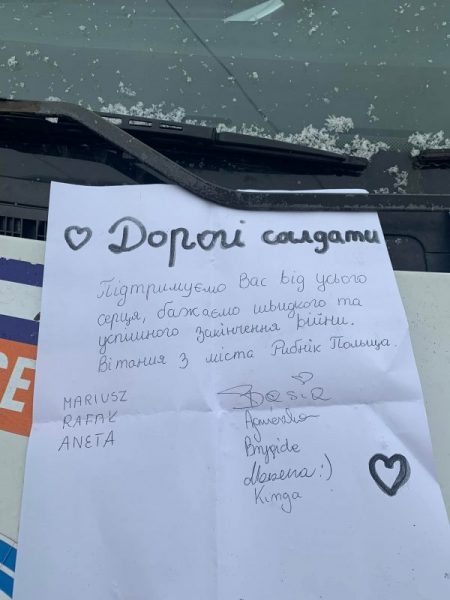 Дорогі солдати
Підтримуємо Вас від усього
серця, бажаємо швидкого та
успішного закінчення війни.
Вітання з міста Рибнік Польща.
MARIUSZ
RAFAŁ
ANETA
Basia
Agnieszka
Brygide
Marzena :)
Kinga
CE